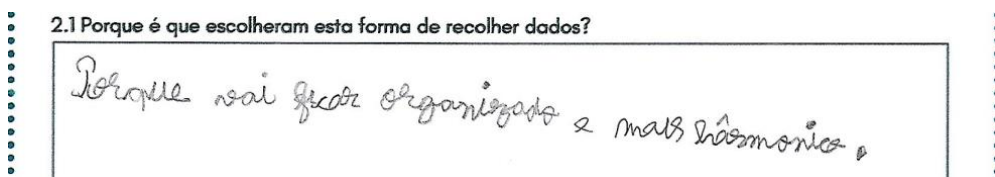 2.1 Porque é que escolheram esta forma de recolher dados?
Porque vai ficar organizado e mais hâsmonico.